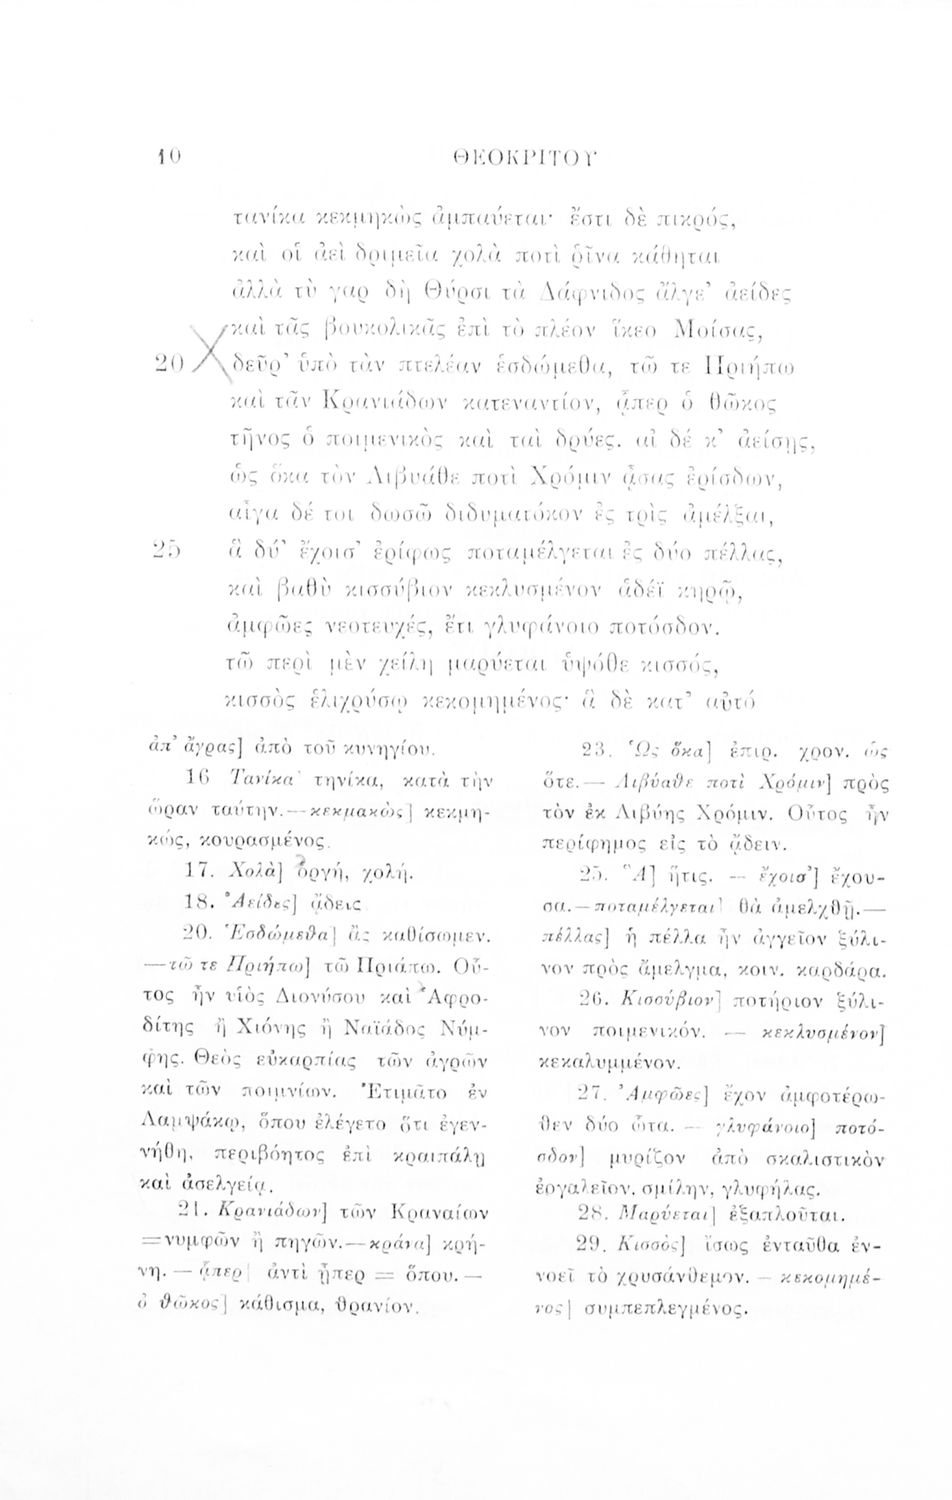 10 ΘΕΟΚΡΙΤΟΥ
τανίκα κεκμηκὼς ἀμπαύεται· ἔστι δὲ πικρός,
καὶ οἱ ἀεὶ δριμεῖα χολὰ ποτὶ ῥῖνα κάθηται
ἀλλὰ τὺ γαρ δὴ Θύρσι τὰ Δάφνιδος ἄλγε’ ἀείδες
καὶ τᾶς βουκολικᾶς ἐπὶ τὸ πλέον ἵκεο Μοίσας,
20 δεῦρ’ ὑπὸ τὰν πτελέαν ἑσδώμεθα, τῶ τε Πριήπω
καὶ τᾶν Κρανιάδων κατεναντίον, ᾇπερ ὁ θῶκος
τῆνος ὁ ποιμενικὸς καὶ ταὶ δρύες. αἰ δέ κ’ ἀείσῃς,
ὡς ὅκα τὸν Λιβυάθε ποτὶ Χρόμιν ᾆσας ἐρίσδων,
αἶγα δέ τοι δωσῶ διδυματόκον ἐς τρὶς ἀμέλξαι,
25 ἃ δύ’ ἔχοισ’ ἐρίφως ποταμέλγεται ἐς δύο πέλλας,
καὶ βαθὺ κισσύβιον κεκλυσμένον ἁδέϊ κηρῷ,
ἀμφῶες νεοτευχές, ἔτι γλυφάνοιο ποτόσδον.
τῶ περὶ μὲν χείλη μαρύεται ὑψόθε κισσός,
κισσὸς ἑλιχρύσῳ κεκομημένος· ἃ δὲ κατ’ αὐτό
ἀπ’ ἄγρας] ἀπὸ τοῦ κυνηγίου.
16 Τανίκα] τηνίκα, κατὰ τὴν
ὥραν ταύτην.—κεκμακὼς] κεκμη-
κώς, κουρασμένος.
17. Χολὰ] ὀργή, χολή.
18. Ἀείδες] ᾄδεις
20. Ἑσδώμεθα] ἂς καθίσωμεν.
—τῶ τε Πριήπω] τῶ Πριάπω. Οὗ-
τος ἦν υἱὸς Διονύσου καὶ Ἀφρο-
δίτης ἢ Χιόνης ἢ Ναϊάδος Νύμ-
φης. Θεὸς εὐκαρπίας τῶν ἀγρῶν
καὶ τῶν ποιμνίων. Ἐτιμᾶτο ἐν
Λαμψάκῳ, ὅπου ἐλέγετο ὅτι ἐγεν-
νήθη, περιβόητος ἐπὶ κραιπάλῃ
καὶ ἀσελγείᾳ.
21. Κρανιάδων] τῶν Κραναίων
=νυμφῶν ἢ πηγῶν.—κράνα] κρή-
νη. — ᾇπερ] ἀντὶ ᾗπερ = ὅπου. —
ὁ θῶκος] κάθισμα, θρανίον.
23. Ὡς ὅκα] ἐπιρ. χρον. ὡς
ὅτε.— Λιβύαθε ποτὶ Χρόμιν] πρὸς
τὸν ἐκ Λιβύης Χρόμιν. Οὗτος ἦν
περίφημος εἰς τὸ ᾄδειν.
25. Ἃ] ἥτις. — ἔχοισ’] ἔχου-
σα.—ποταμέλγεται] θὰ ἀμελχθῇ.—
πέλλας] ἡ πέλλα ἦν ἀγγεῖον ξύλι-
νον πρὸς ἄμελγμα, κοιν. καρδάρα.
26. Κισσύβιον] ποτήριον ξύλι-
νον ποιμενικόν. — κεκλυσμένον]
κεκαλυμμένον.
27. Ἀμφῶες] ἔχον ἀμφοτέρω-
θεν δύο ὦτα. — γλυφάνοιο] ποτό-
σδον] μυρίζον ἀπὸ σκαλιστικὸν
ἐργαλεῖον, σμίλην, γλυφήλας.
28. Μαρύεται] ἐξαπλοῦται.
29. Κισσὸς] ἴσως ἐνταῦθα ἐν-
νοεῖ τὸ χρυσάνθεμον. — κεκομημέ-
νος] συμπεπλεγμένος.